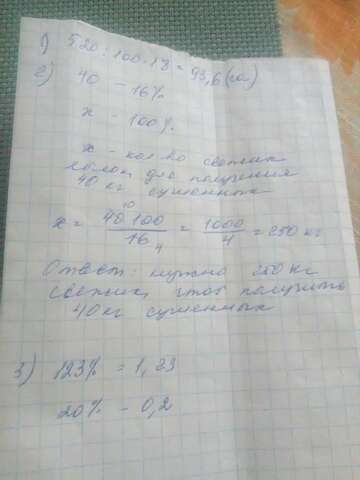 1) 520 : 100 · 18 = 93,6 (га)
2) 40 - 16%
х - 100%
х - кол-во свежих
яблок для получения
40 кг сушенных
х = 40 100 / 16 = 1000 / 4 = 250 кг
10
4
Ответ: нужно 250 кг
свежих, чтоб получить
40 кг сушенных
3) 123% = 1,23
20% - 0,2